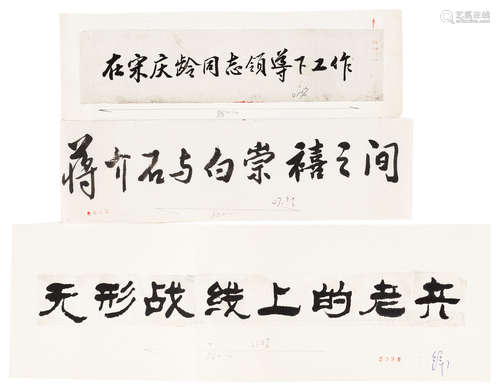 在宋庆龄同志领导下工作
蒋介石与白崇禧之间
无形战线上的老兵